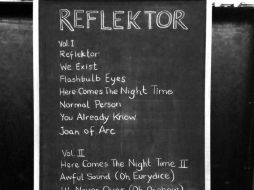 REFLEKTOR
Vol. I
Reflektor
We Exist
Flashbulb Eyes
Here Comes The Night Time
Normal Person
You Already Know
Joan of Arc
Vol. II
Here Comes The Night Time II
Awful Sound (Oh Eurydice)